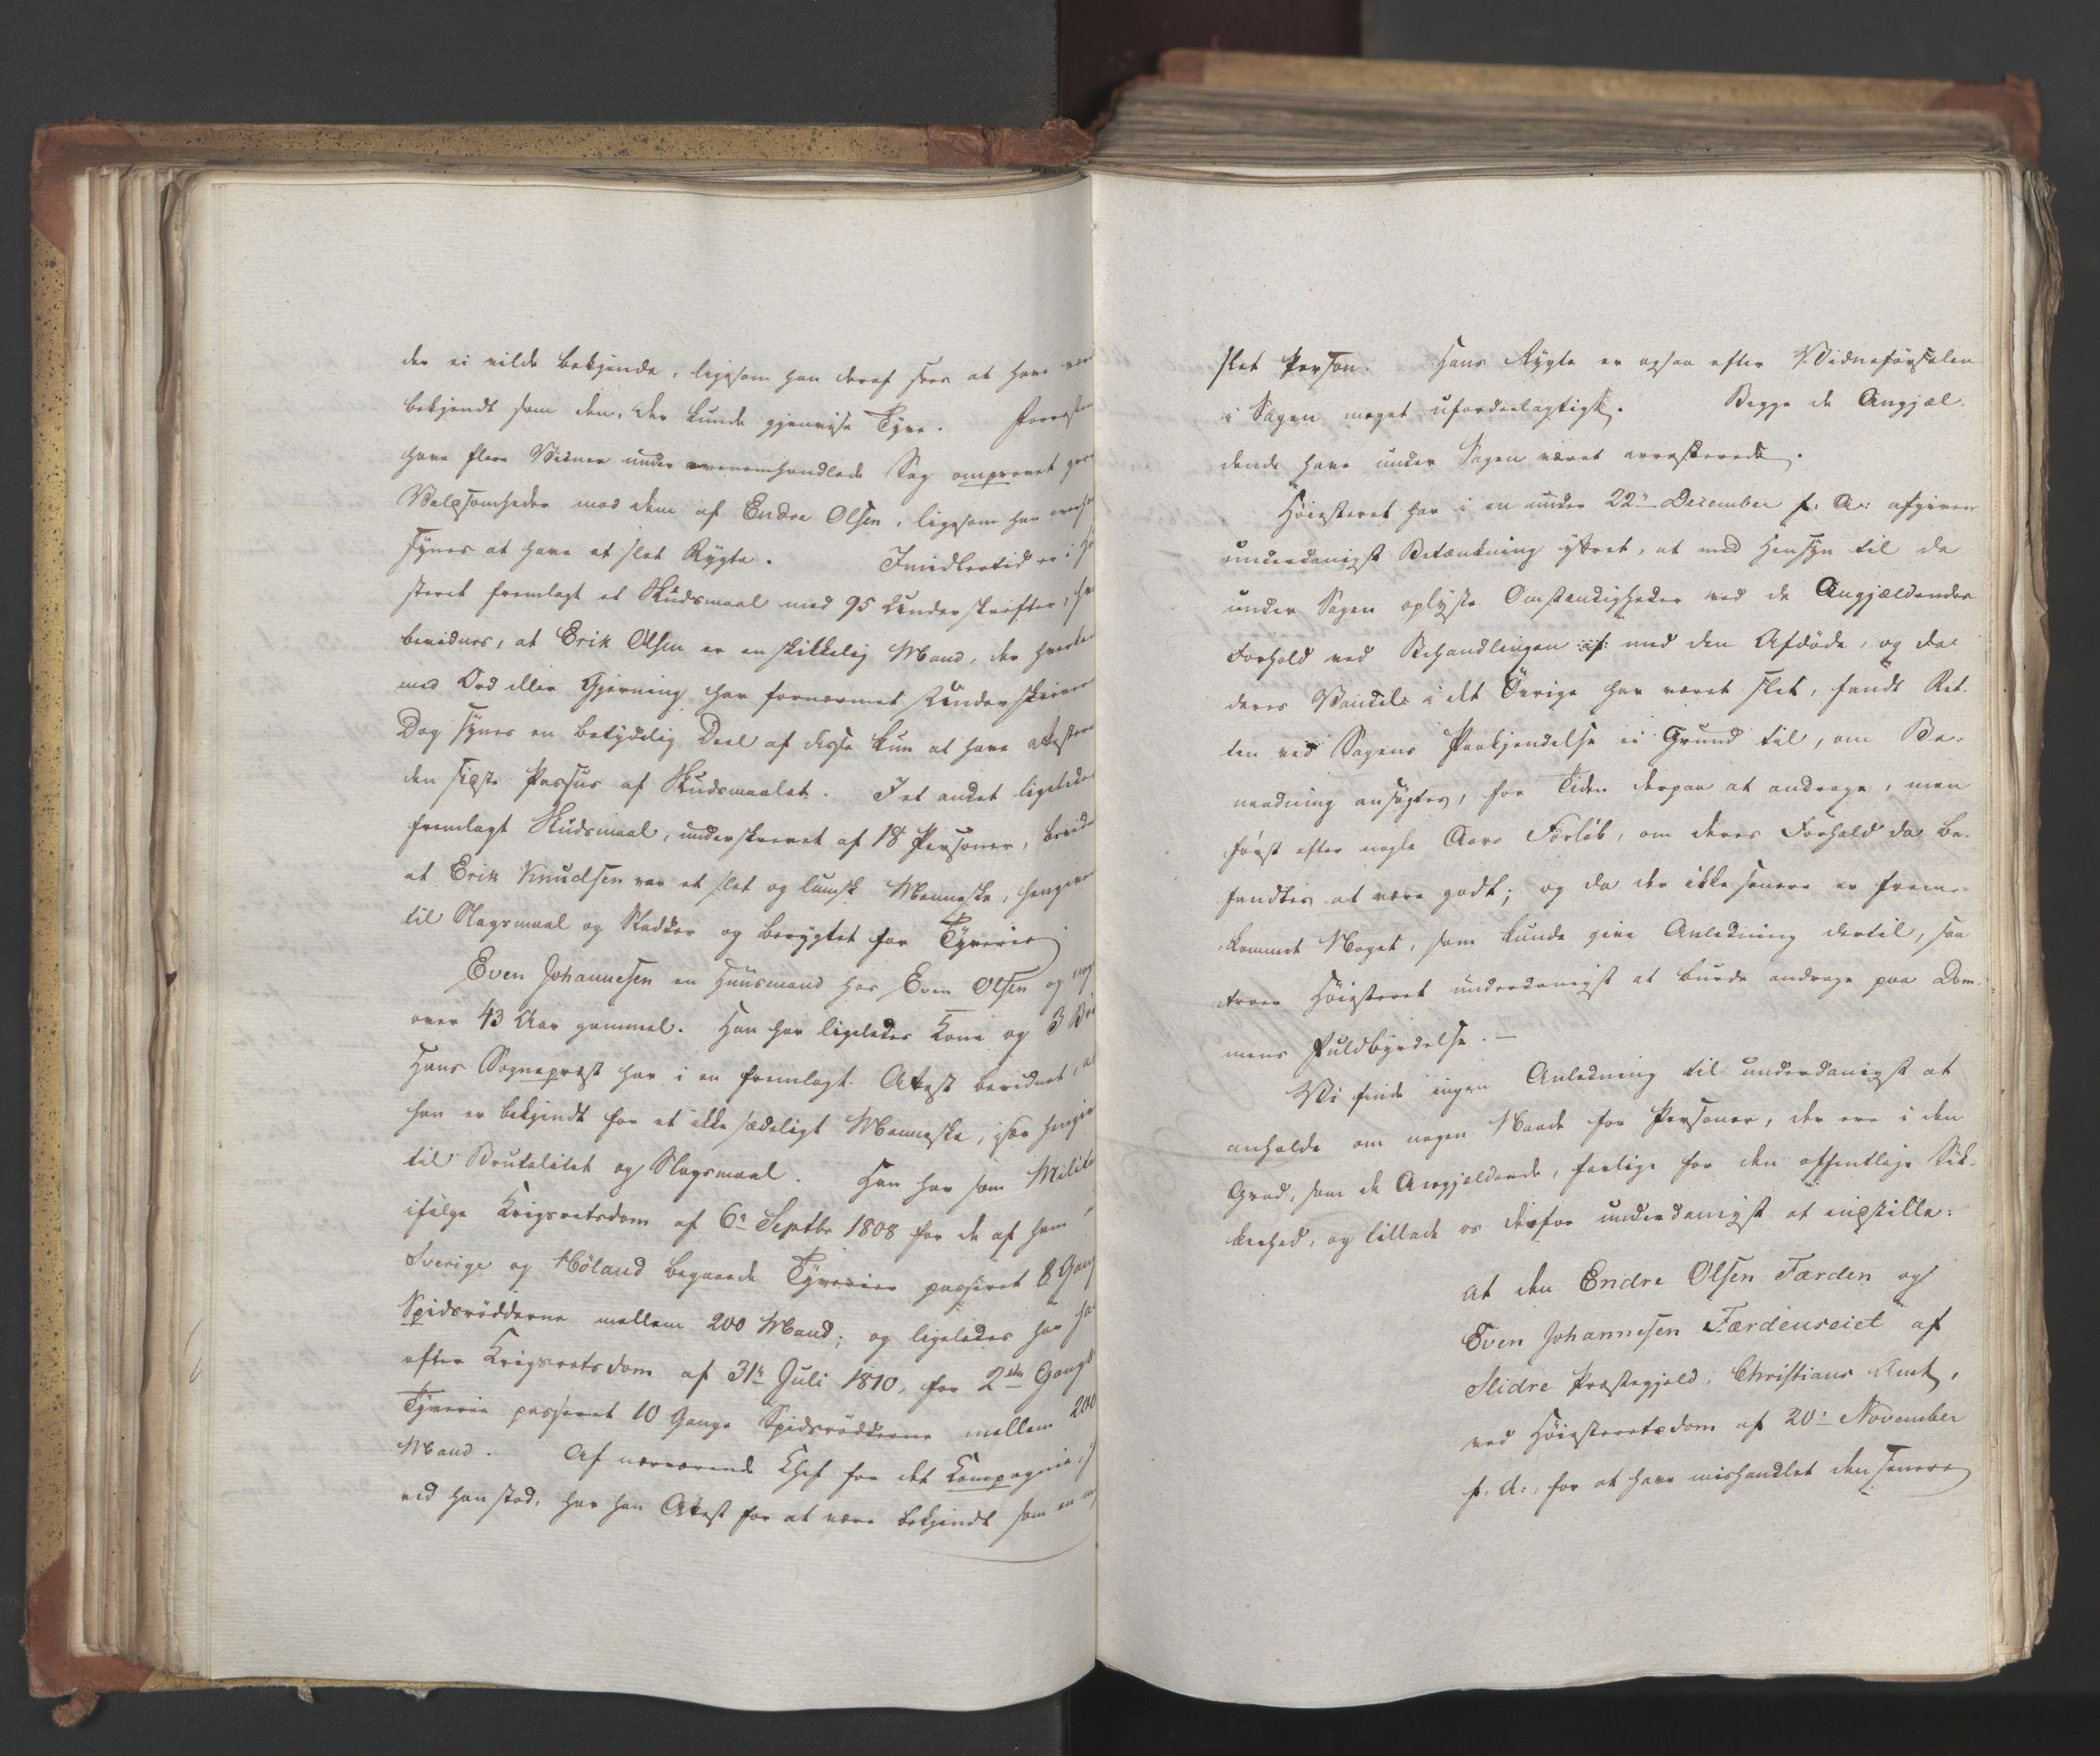 der ei vilde bekjende, ligesom han deraf sees at have
bekjendt som den, der kunde gjenvise Tyve.
have flere Vidner under ovenomhandlede Sag omprovet
Voldsomheder mod dem af Endre Olsen, ligesom han
synes at have et slet Rygte. Imidlertid er i
steret fremlagt et Skudsmaal med 95 Underskrifter,
bevidner, at Erik Olsen er en skikkelig Mand, der hverken
med Ord eller Gjerning har fornærmet Underskriver
Dog synes en betydelig Deel af disse kun at have attestere
den sidste Passus af Skudsmaalet. I et andet ligeledes
fremlagt Skudsmaal, underskrevet af 18 Personer, bevidn
at Erik Knudsen var et slet og lumsk Menneske, hengiven
til Slagsmaal og Rakker og berygtet for Tyverier
Even Johannesen en Huusmand hos Even Olsen og
over 43 Aar gammel. Han har ligeledes Kone og 3
Hans Sognepræst har i en fremlagt Attest bevidnet,
han er bekjendt for et ikke sædeligt Menneske, især
til Brutalitet og Slagsmaal. Han har som
ifølge Krigsretsdom af 6te Septbr 1808 for de af ham
Sverige og Höland begaaede Tyverier passeret 8 Gang
Spidsrödderne mellem 200 Mand; og ligeledes har
efter Krigsretsdom af 31te Juli 1810, for 2den Gangs
Tyverie passeret 10 Gange Spidsrödderne mellem 200
Mand. Af nærværende Chef for det Kompagnie,
ved han stod, har han Attest for at være bekjendt som en
slet Person. Hans Rygte er ogsaa efter Vidneförselen
i Sagen meget ufordeelagtigt. Begge de Angjæl
dende have under Sagen været arresterede.
Höiesteret har i en under 22de December f: A: afgiven
underdanigst Betænkning yttret, at med Hensyn til de
under Sagen oplyste Omstændigheder ved de Angjældendes
Forhold ved Behandlingen af med den Afdöde, og da
deres Vandel i det Övrige har været slet, fandt Ret-
ten ved Sagens Paakjendelse ei Grund til, om Be-
naadning ansögtes, for Tiden derpaa at andrage, men
först efter nogle Aars Forlöb, om deres Forhold da be-
fandtes at være godt; og da der ikke senere er frem-
kommet Noget, som kunde give Anledning dertil, saa
troer Höiesteret underdanigst at burde andrage paa Dom-
mens Fuldbyrdelse. —
Vi finde ingen Anledning til underdanigst at
anholde om nogen Naade for Personer, der ere i den
Grad, som de Angjældende, farlige for den offentlige Sik-
kerhed, og tillade os derfor underdanigst at indstille:
at den Endre Olsen Færden og
Even Johannesen Færdenseiet af
Slidre Præstegjeld, Christians Amt,
ved Höiesteretsdom af 20de November
f: A:, for at have mishandlet den senere